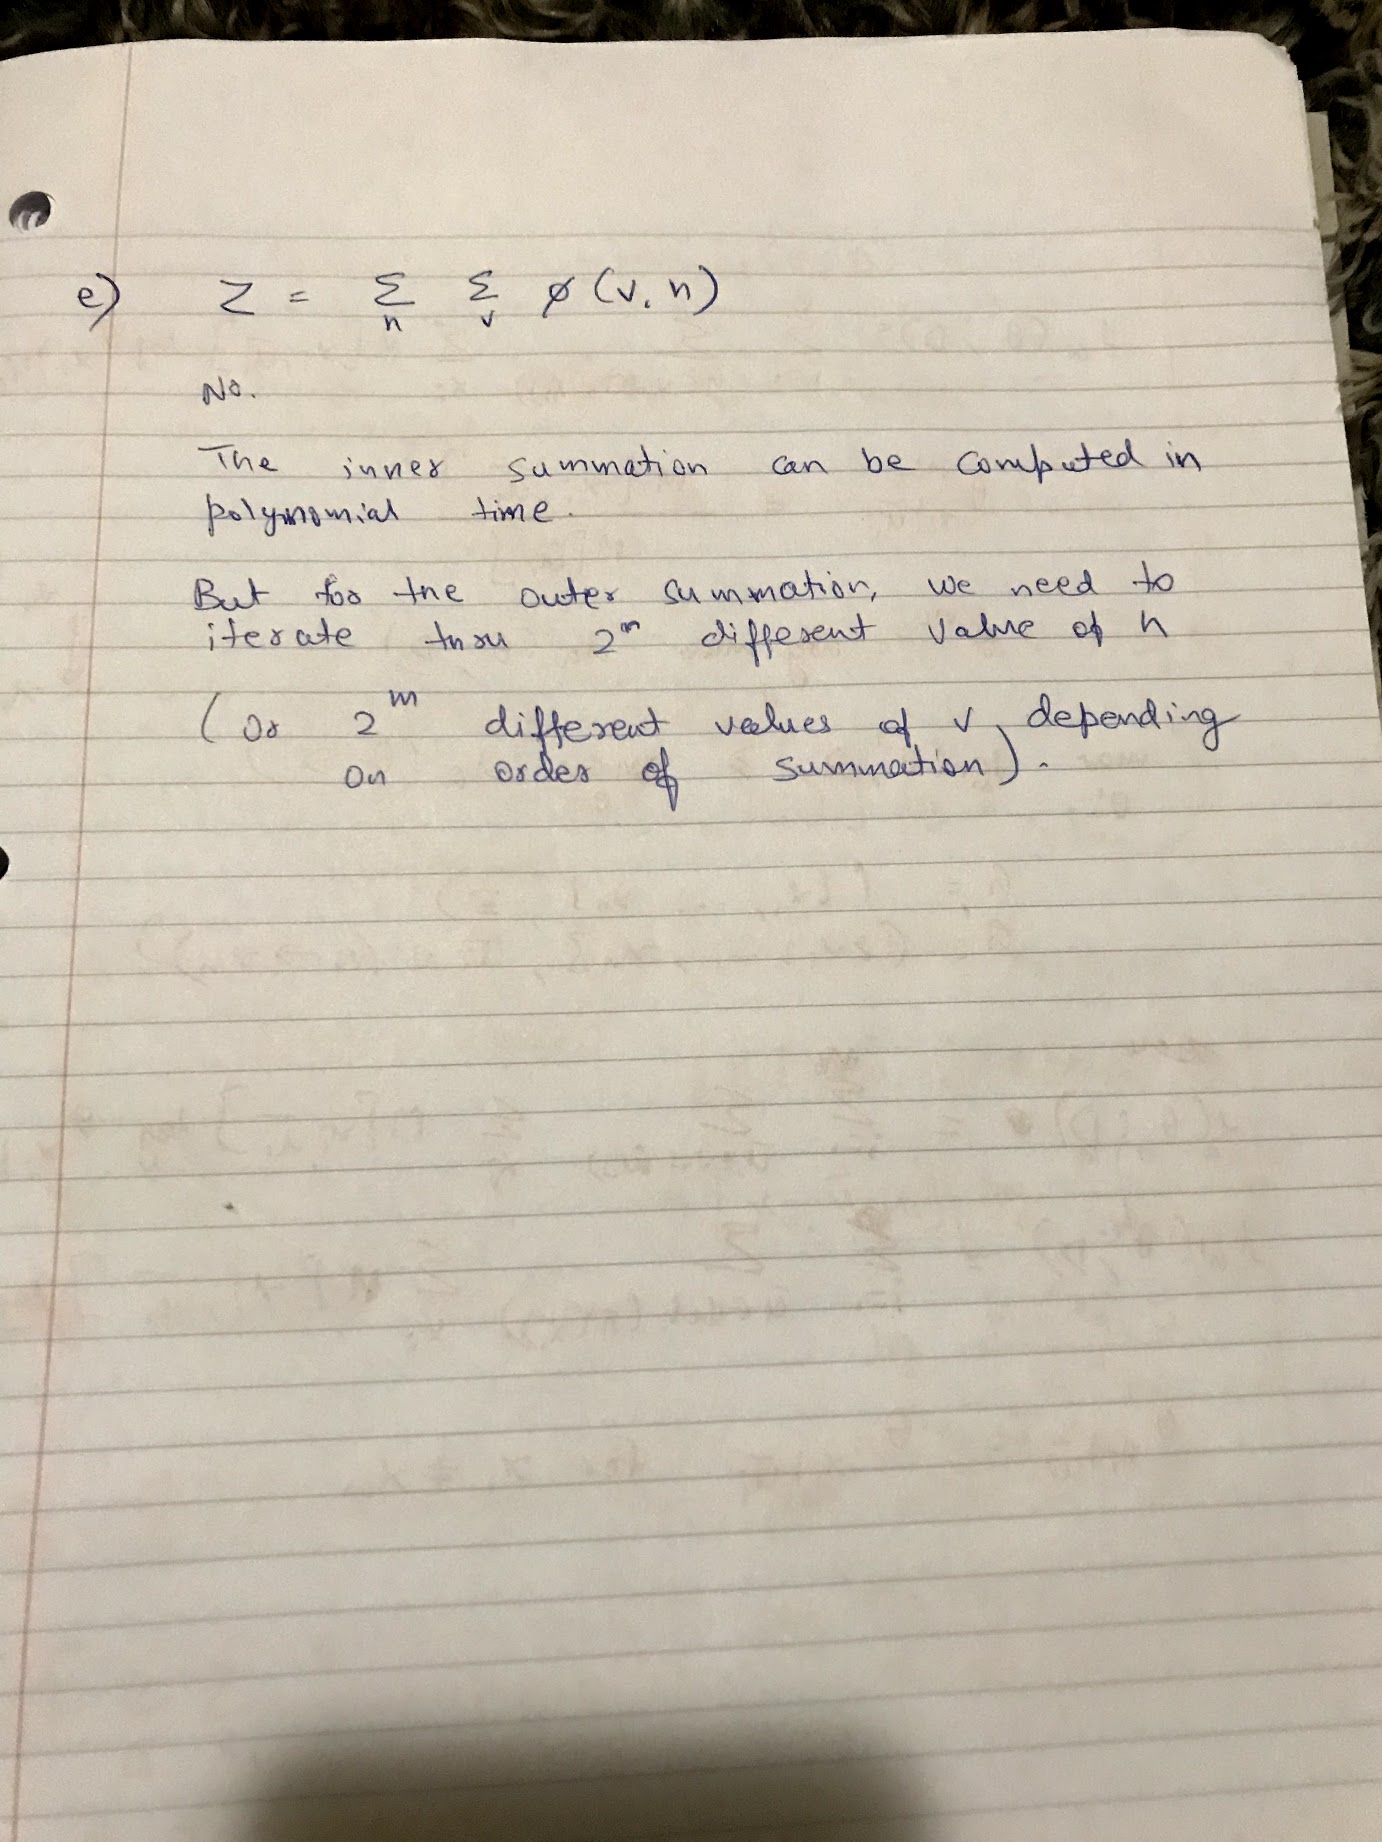 e) Z = Σ_h Σ_v φ(v, h)
No.
The inner summation can be computed in
polynomial time.
But for the outer summation, we need to
iterate thru 2^n different value of h
(or 2^m different values of v, depending
on order of summation).